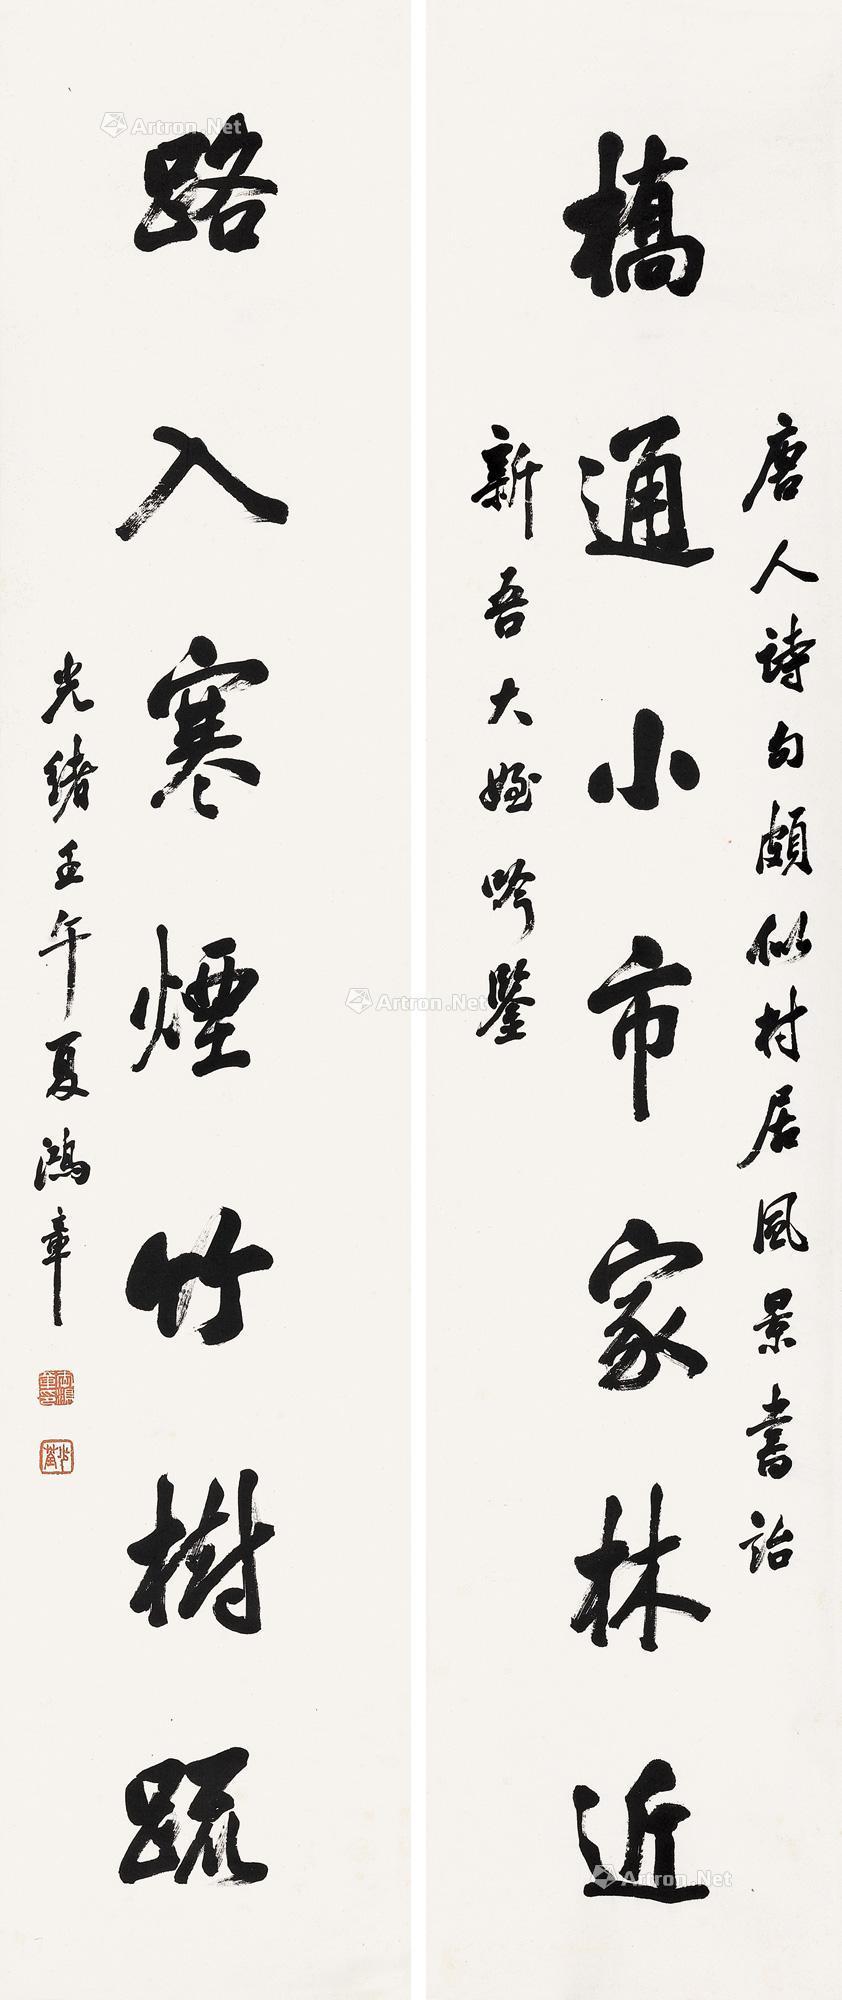 唐人詩句頗似村居風景書詒
橋通小市家林近
新吾大姪吟鑒
路入寒煙竹樹疏
光緒壬午夏鴻章
Artron.Net
Artron.Net
Artron.Net